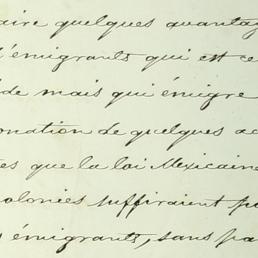 aire quelques avantag
d'émigrants qui est ce
de mais qui émigre
onation de quelques ac
es que la loi Mexicaine
colonies suffiraient po
émigrants, sans pa